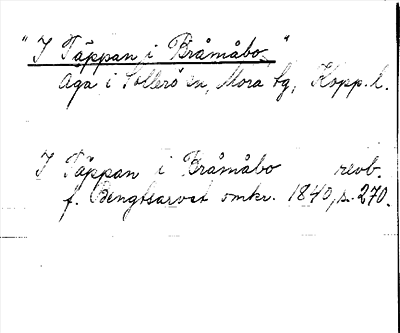 "I Täppan i Bråmåbo"
Äga i Sollerö sn, Mora tg, Kopp. l.
I Täppan i Bråmåbo
f. Bengtsarvet omkr. 1840, s. 270.